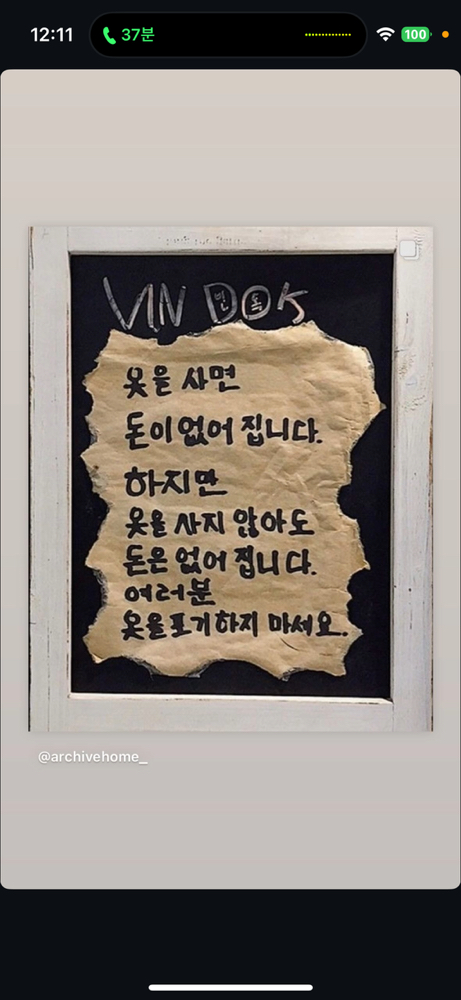 12:11 37분 100
VIN DOK
빈 톡
옷을 사면
돈이 없어 집니다.
하지만
옷을 사지 않아도
돈은 없어 집니다.
여러분
옷을 포기하지 마세요.
@archivehome_